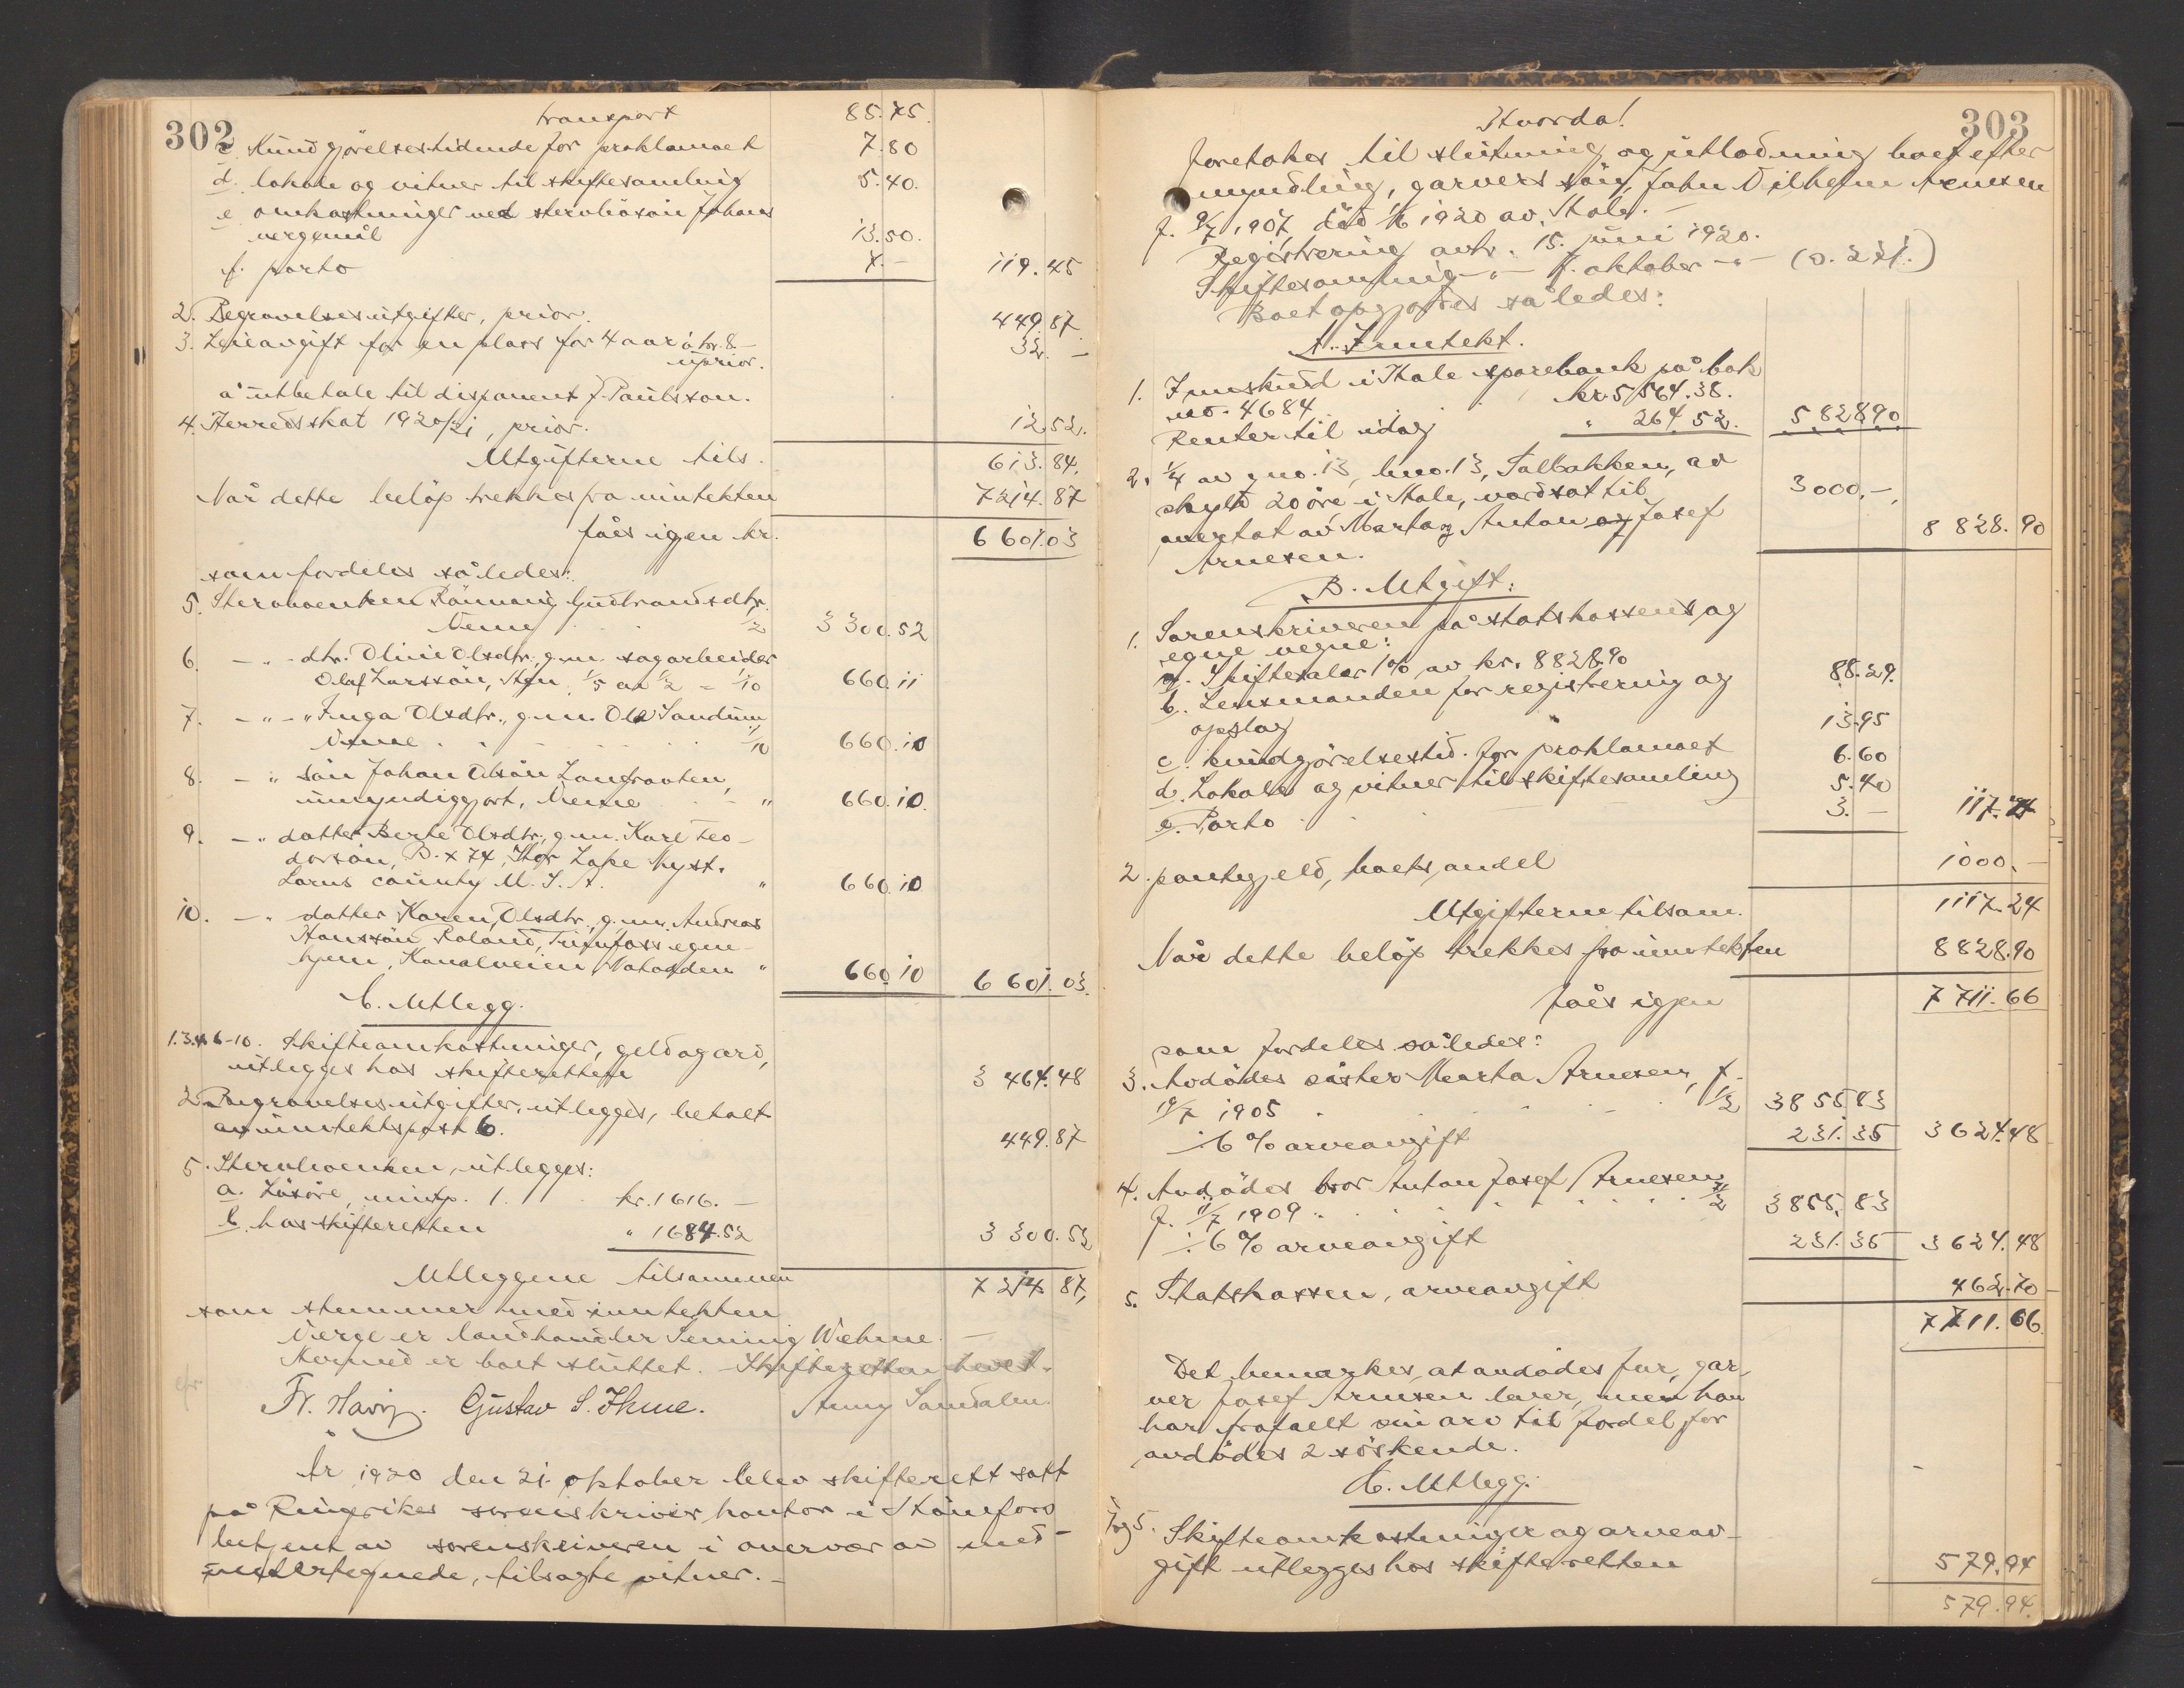 302
transport 85.75
c. Kundgjörelsestidende for proklamaet 7.80
d. lokale og vitner til skiftesamling 5.40.
e omkostninger ved stervbosøn Johans
vergemål 13.50.
f. porto 7.- 119.45
2. Begravelsesutgifter, prior. 449.87
3. Leieavgift for en plass for 4 aar à kr. 8- 32.-
uprior.
å utbetale til disponent J. Paulsson.
4. Herredsskat 1920/21, prior. 12.52.
Utgifterne tils. 613.84.
Når dette beløp trekkes fra inntekten 7214.87
fåes igen kr. 6601.03
som fordeles således:
5. Stervboenken Rönnaug Gudbrandsdtr.
Veme 1/2 3300.52
6. -"- dtr. Oline Olsdtr., g.m. sagarbeider
Olaf Larssön, Sten, 1/5 av 1/2 = 1/10 660.11
7. -"- " Inga Olsdtr., g.m. Ole Sandum
Veme 1/10 660.10
8. -" sön Johan Olsön Langraaten,
umyndiggjort, Veme " 660.10.
9. -" datter Berte Olsdtr., g.m. Karl Teo-
dorsön, B. x 74,
county U. S. A. " 660.10
10. -" datter Karen Olsdtr., g.m. Andreas
Hanssön Roland, Tinnfoss egne-
hjem, Kanalveien, Notodden " 660.10 6601.03.
C. Utlegg.
1.3.4.6-10. Skifteomkostninger, geld og arv,
utlegges hos skifteretten 3464.48
2. Begravelsesutgifter, utlegges, betalt
av inntektspost 6. 449.87
5. Stervboenken, utlegges:
a. Løsøre, inntp. 1. kr. 1616.-
b. hos skifteretten " 1684.52 3300.52
Utleggene tilsammen 7214.87,
som stemmer med inntekten
Verge er landhandler Wehme. -
Hermed er boet sluttet. - Skifteretten hevet.
Fr. Gustav S. Ihme. Anny Sandalen.
År 1920 den 21. oktober blev skifterett satt
på Ringerikes sorenskriverkontor i Hönefoss
betjent av sorenskriveren i overvær av med-
undertegnede, tilsagte vitner. -
303
Hvorda!
foretokes til slutning og utlodning boet efter
umyndling, garvers sön, John Vilhelm Arnesen
f. 9/7 1907, död 1/6 1920 av Hole. -
Registrering avh. 15. juni 1920.
Skiftesamling -"- 7. oktober -"- (s. 271.)
Boet opgjøres således:
A. Inntekt.
1. Innskud i Hole sparebank på bok
no. 4684 kr. 5,564.38.
Renter til idag " 264.52. 5828.90
2. 1/4 av gno. 13, bno. 13, Solbakken, av
skyld 20 øre i Hole, verdsat til 3000,-,
overtat av Marta og Anton og Josef
Arnesen. 8828.90
B. Utgift:
1. Sorenskriveren på statskassens og
egne vegne:
a. Skiftesalær 1% av kr. 8828.90 88.29.
b. Lensmanden for registrering og
opslag 13.95
c. kundgjörelsestid. for proklamaet 6.60
d. Lokale og vitner til skiftesamling 5.40
e. Porto 3.- 117.24
2. pantegjeld, boets andel 1000.-
Utgifterne tilsam. 1117.24
Når dette beløp trekkes fra inntekten 8828.90
fåes igjen 7711.66
som fordeles således:
3. Avdödes söster Marta Arnesen, f.
19/7 1905 1/2 3855.83
÷ 6 % arveavgift 231.35 3624.48
4. Avdödes bror Anton Josef Arnesen
f. 11/7 1909 1/2 3855.83
÷ 6 % arveavgift 231.35 3624.48
5. Statskassen, arveavgift 462.70
7711.66.
Det bemerkes, at avdödes far, gar-
ver Josef Arnesen lever, men han
har frafaelt sin arv til fordel for
avdödes 2 söskende.
C. Utlegg.
1 og 5. Skifteomkostninger og arveav-
gift utlegges hos skifteretten 579.94
579.94.